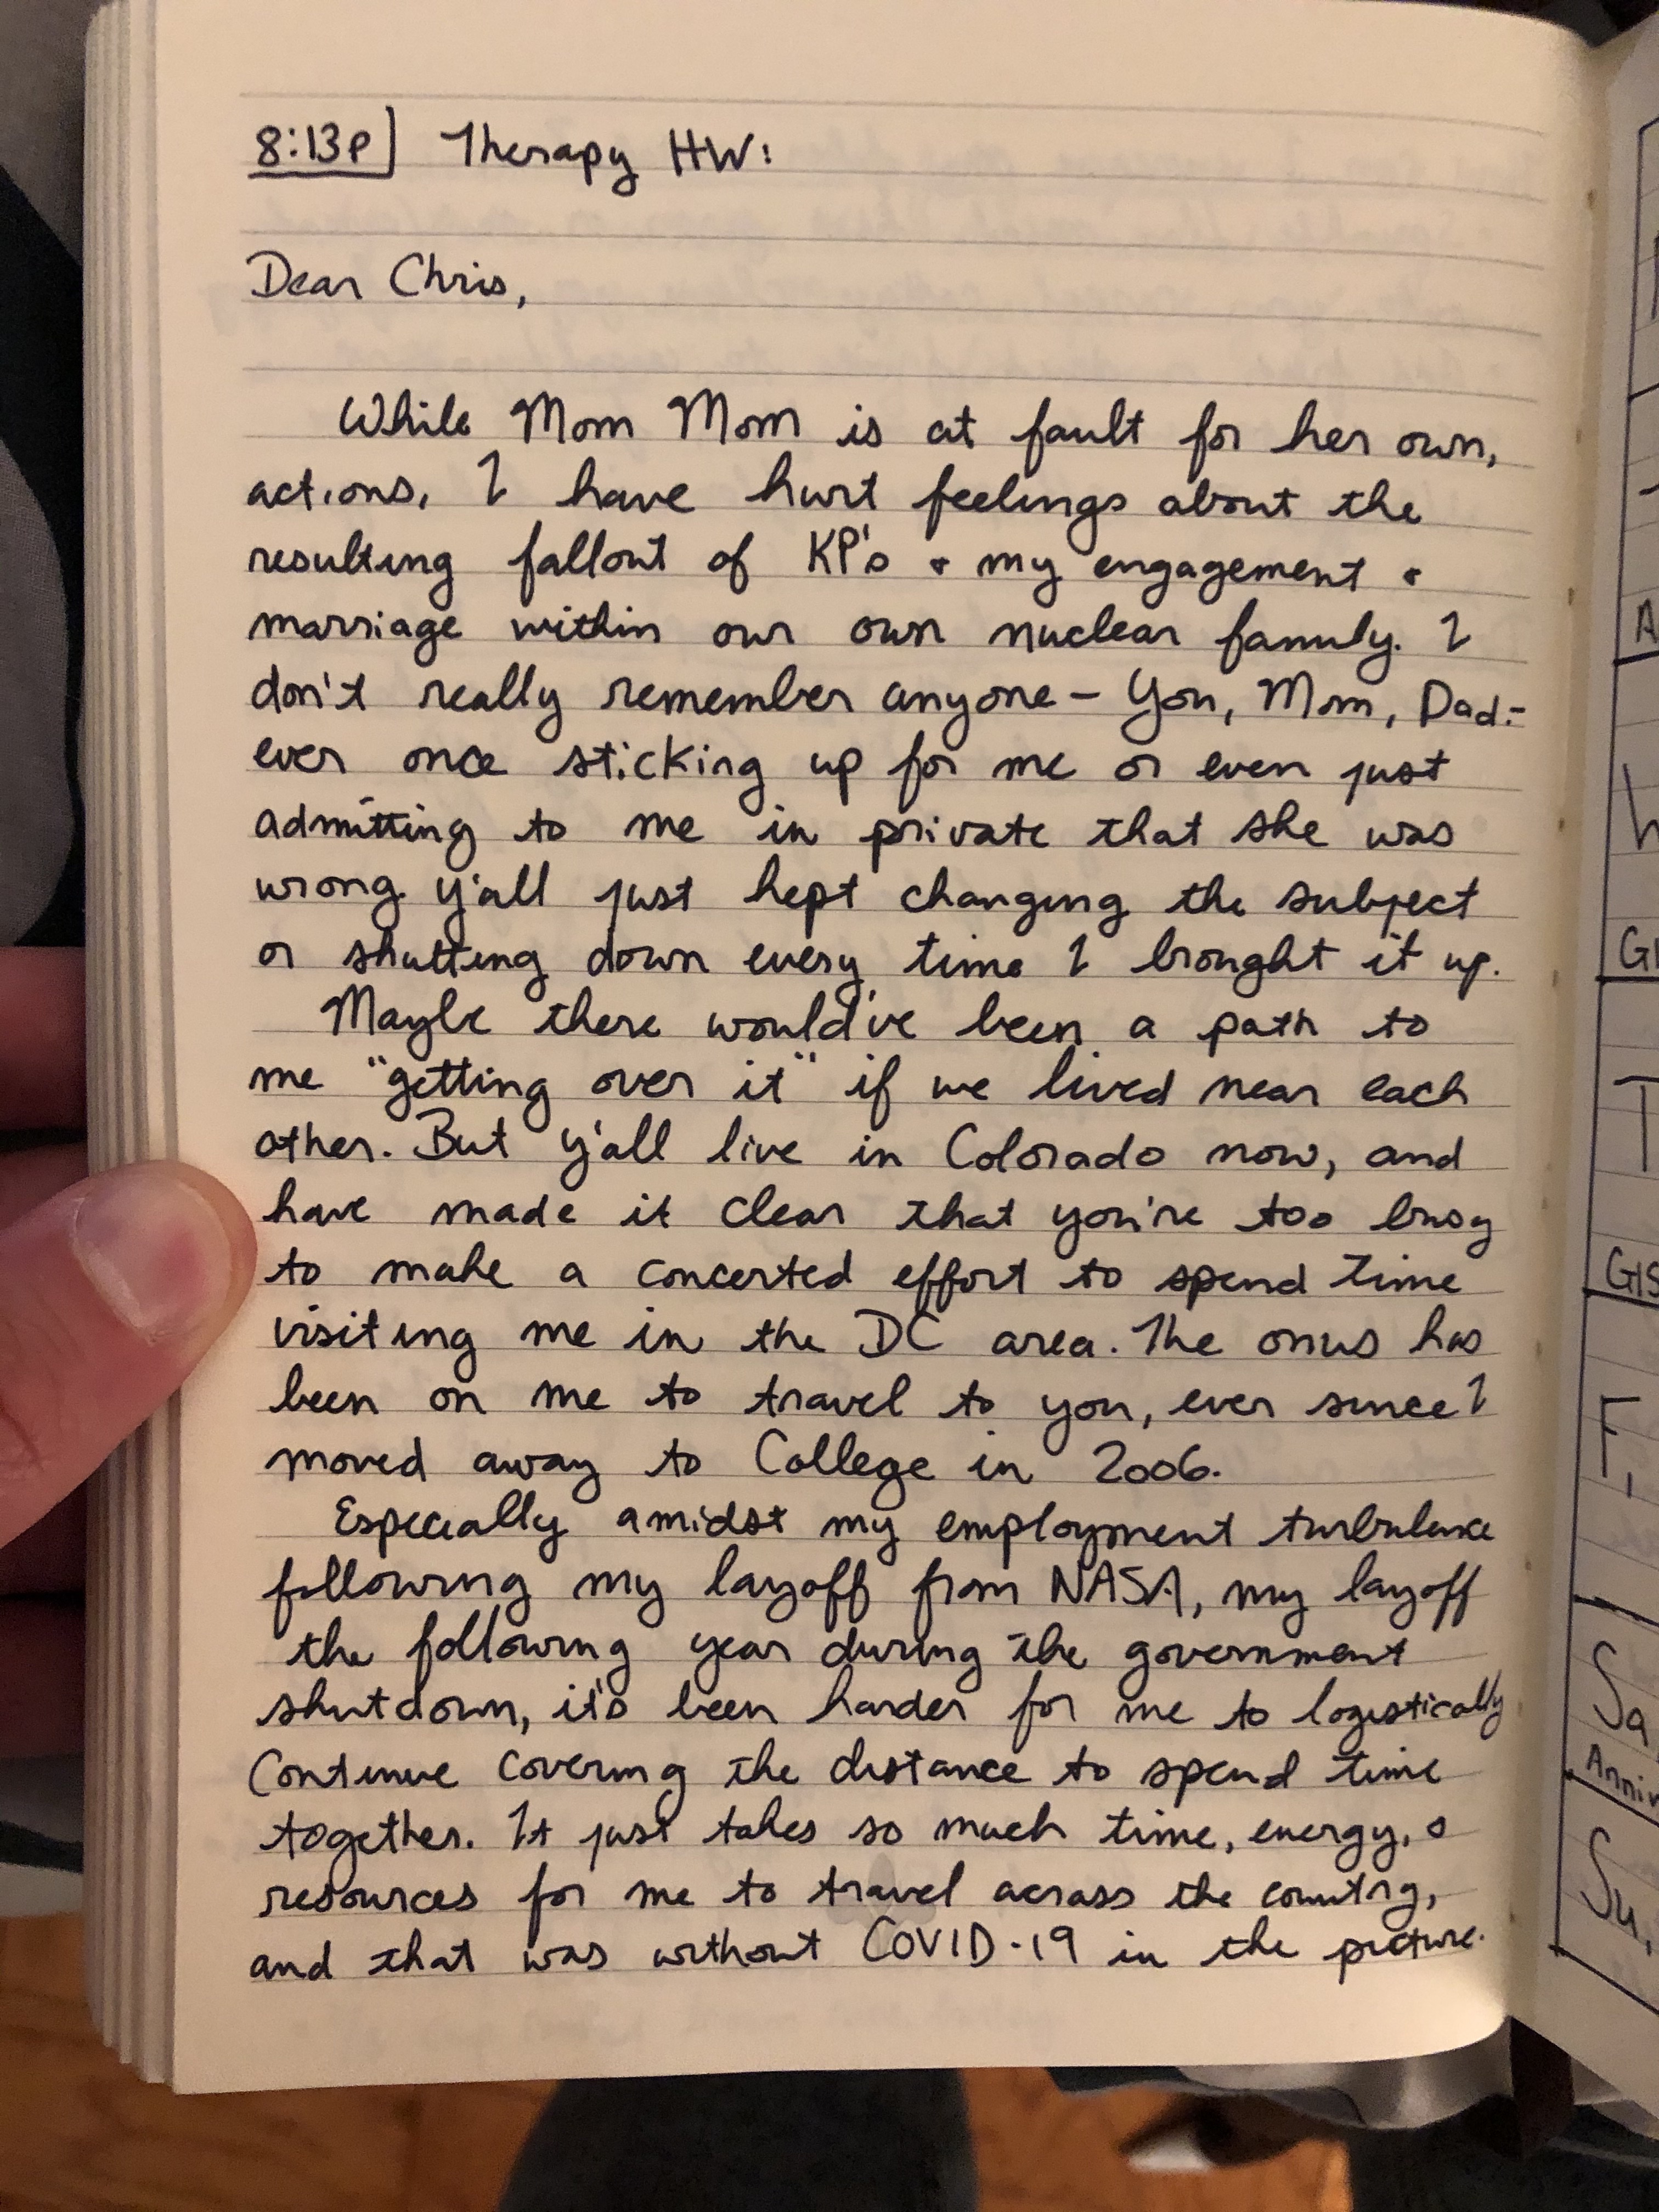 8:13P] Therapy HW:
Dear Chris,
While Mom Mom is at fault for her own,
actions, I have hurt feelings about the
resulting fallout of KP's & my engagement &
marriage within our own nuclear family. I
don't really remember anyone - You, Mom, Dad -
ever once sticking up for me or even just
admitting to me in private that she was
wrong. y'all just kept changing the subject
or shutting down every time I brought it up.
Maybe there would've been a path to
me "getting over it" if we lived near each
other. But y'all live in Colorado now, and
have made it clear that you're too busy
to make a concerted effort to spend time
visiting me in the DC area. The onus has
been on me to travel to you, ever since I
moved away to College in 2006.
Especially amidst my employment turbulence
following my layoff from NASA, my layoff
the following year during the government
shutdown, it's been harder for me to logistically
continue covering the distance to spend time
together. It just takes so much time, energy, &
resources for me to travel across the country,
and that was without COVID-19 in the picture.
A
GI
T
GIS
F,
Sa
Anniv
Su,